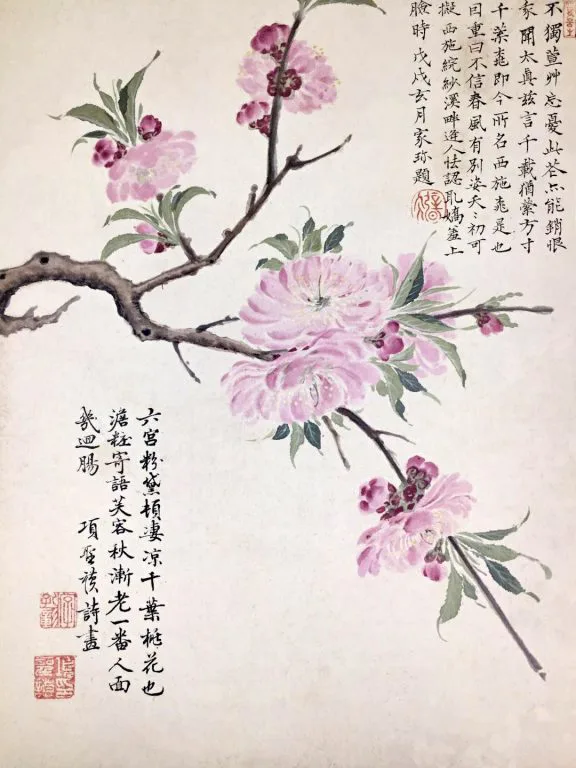 不獨萱艸忘憂此花亦能銷恨
家聞太真玆言千載猶縈方寸
千葉桃即今所名西施桃是也
因重曰不信春風有別姿夭〻初可
擬西施浣紗溪畔逢人怯認取嬌羞上
臉時 戊戌玄月家珎題
六宮粉黛頓凄凉千葉桃花也
澹粧寄語芙容秋漸老一番人面
幾迴腸 項聖謨詩畫